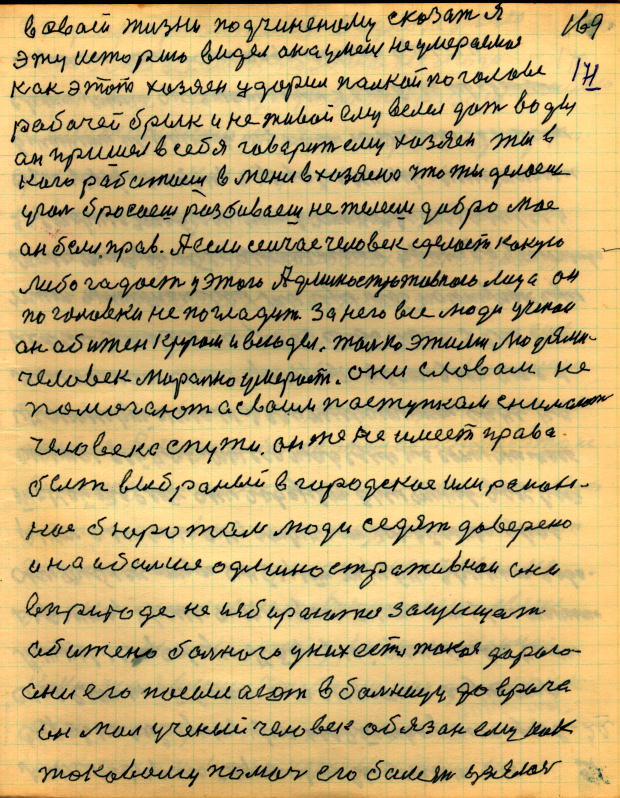 в своей жизни подчиненому сказат Я
169
эту историю видел она умещ не умераемоя
171
как этот хозяен ударил палкой по голове
рабочей брык и не живой ему велел дат воды
ан пришел в себя говарит ему хозяен ты в
кого работаеш в меня в хозяено что ты делаеш
угол бросаеш разбиваеш не желееш добро мое
ан бели прав. А если сеичас человек сделает какую
либо гадост у этого Админостротивного лица он
по головки не погладит. За него все люди ученаи
он абижен кругом и везьде. только этими людями
человек моралноумерает. они словам не
помогают а своим поступкам снимают
человека спути. он же не имеет права
быт выбраный в городское или раион-
ное бюро там люди седят доверено
она абамие одминостративнаи они
вприроде не избираютса защищат
абижено болного у них ест такоя дорога
они его посылают в болницу до врача
он мол ученый человек обязан ему как
токовому помоч его болезн взялоя